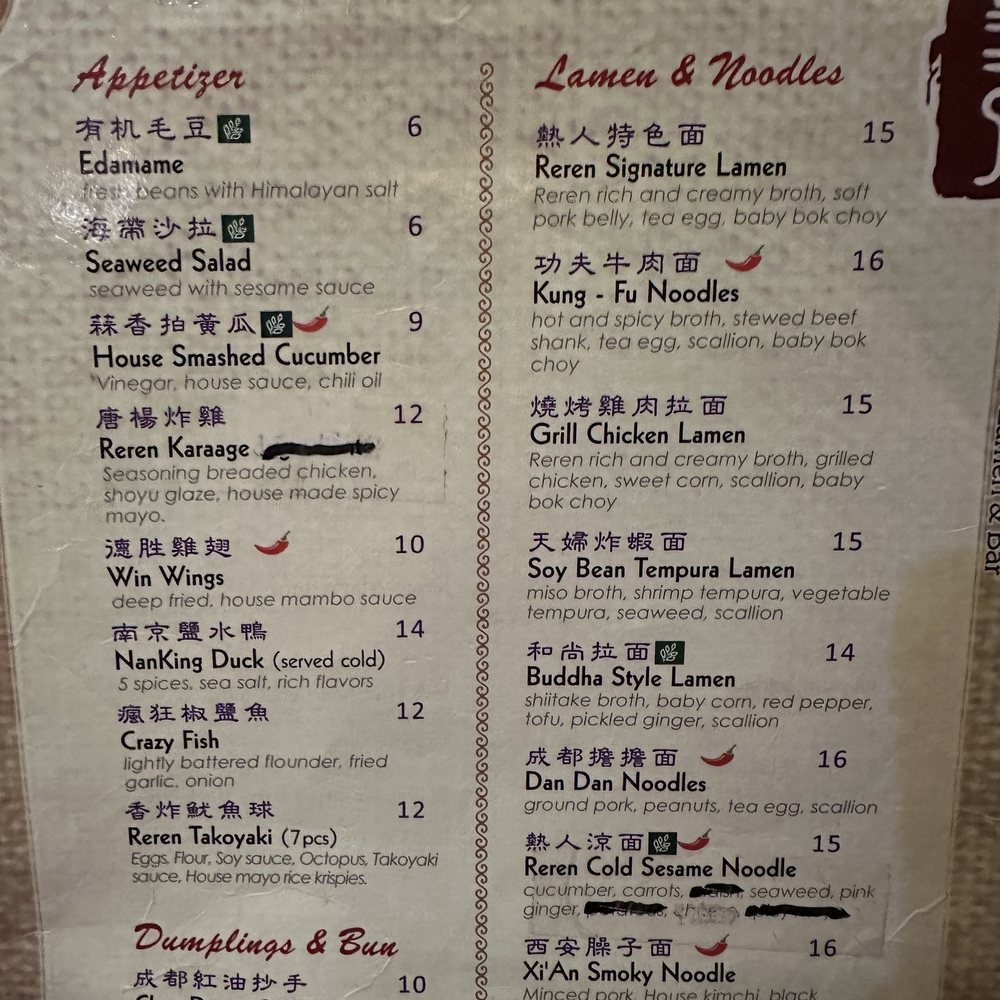 Appetizer
有机毛豆 6
Edamame
fresh beans with Himalayan salt
海帶沙拉 6
Seaweed Salad
seaweed with sesame sauce
蒜香拍黃瓜 9
House Smashed Cucumber
Vinegar, house sauce, chili oil
唐楊炸雞 12
Reren Karaage
Seasoning breaded chicken,
shoyu glaze, house made spicy
mayo.
德胜雞翅 10
Win Wings
deep fried, house mambo sauce
南京鹽水鴨 14
NanKing Duck (served cold)
5 spices, sea salt, rich flavors
瘋狂椒鹽魚 12
Crazy Fish
lightly battered flounder, fried
garlic, onion
香炸魷魚球 12
Reren Takoyaki (7pcs)
Eggs, Flour, Soy sauce, Octopus, Takoyaki
sauce, House mayo rice krispies.
Dumplings & Bun
成都紅油抄手 10
Lamen & Noodles
熱人特色面 15
Reren Signature Lamen
Reren rich and creamy broth, soft
pork belly, tea egg, baby bok choy
功夫牛肉面 16
Kung - Fu Noodles
hot and spicy broth, stewed beef
shank, tea egg, scallion, baby bok
choy
燒烤雞肉拉面 15
Grill Chicken Lamen
Reren rich and creamy broth, grilled
chicken, sweet corn, scallion, baby
bok choy
天婦炸蝦面 15
Soy Bean Tempura Lamen
miso broth, shrimp tempura, vegetable
tempura, seaweed, scallion
和尚拉面 14
Buddha Style Lamen
shiitake broth, baby corn, red pepper,
tofu, pickled ginger, scallion
成都擔擔面 16
Dan Dan Noodles
ground pork, peanuts, tea egg, scallion
熱人涼面 15
Reren Cold Sesame Noodle
cucumber, carrots, seaweed, pink
ginger,
西安臊子面 16
Xi'An Smoky Noodle
Minced pork, House kimchi, black
& Bar